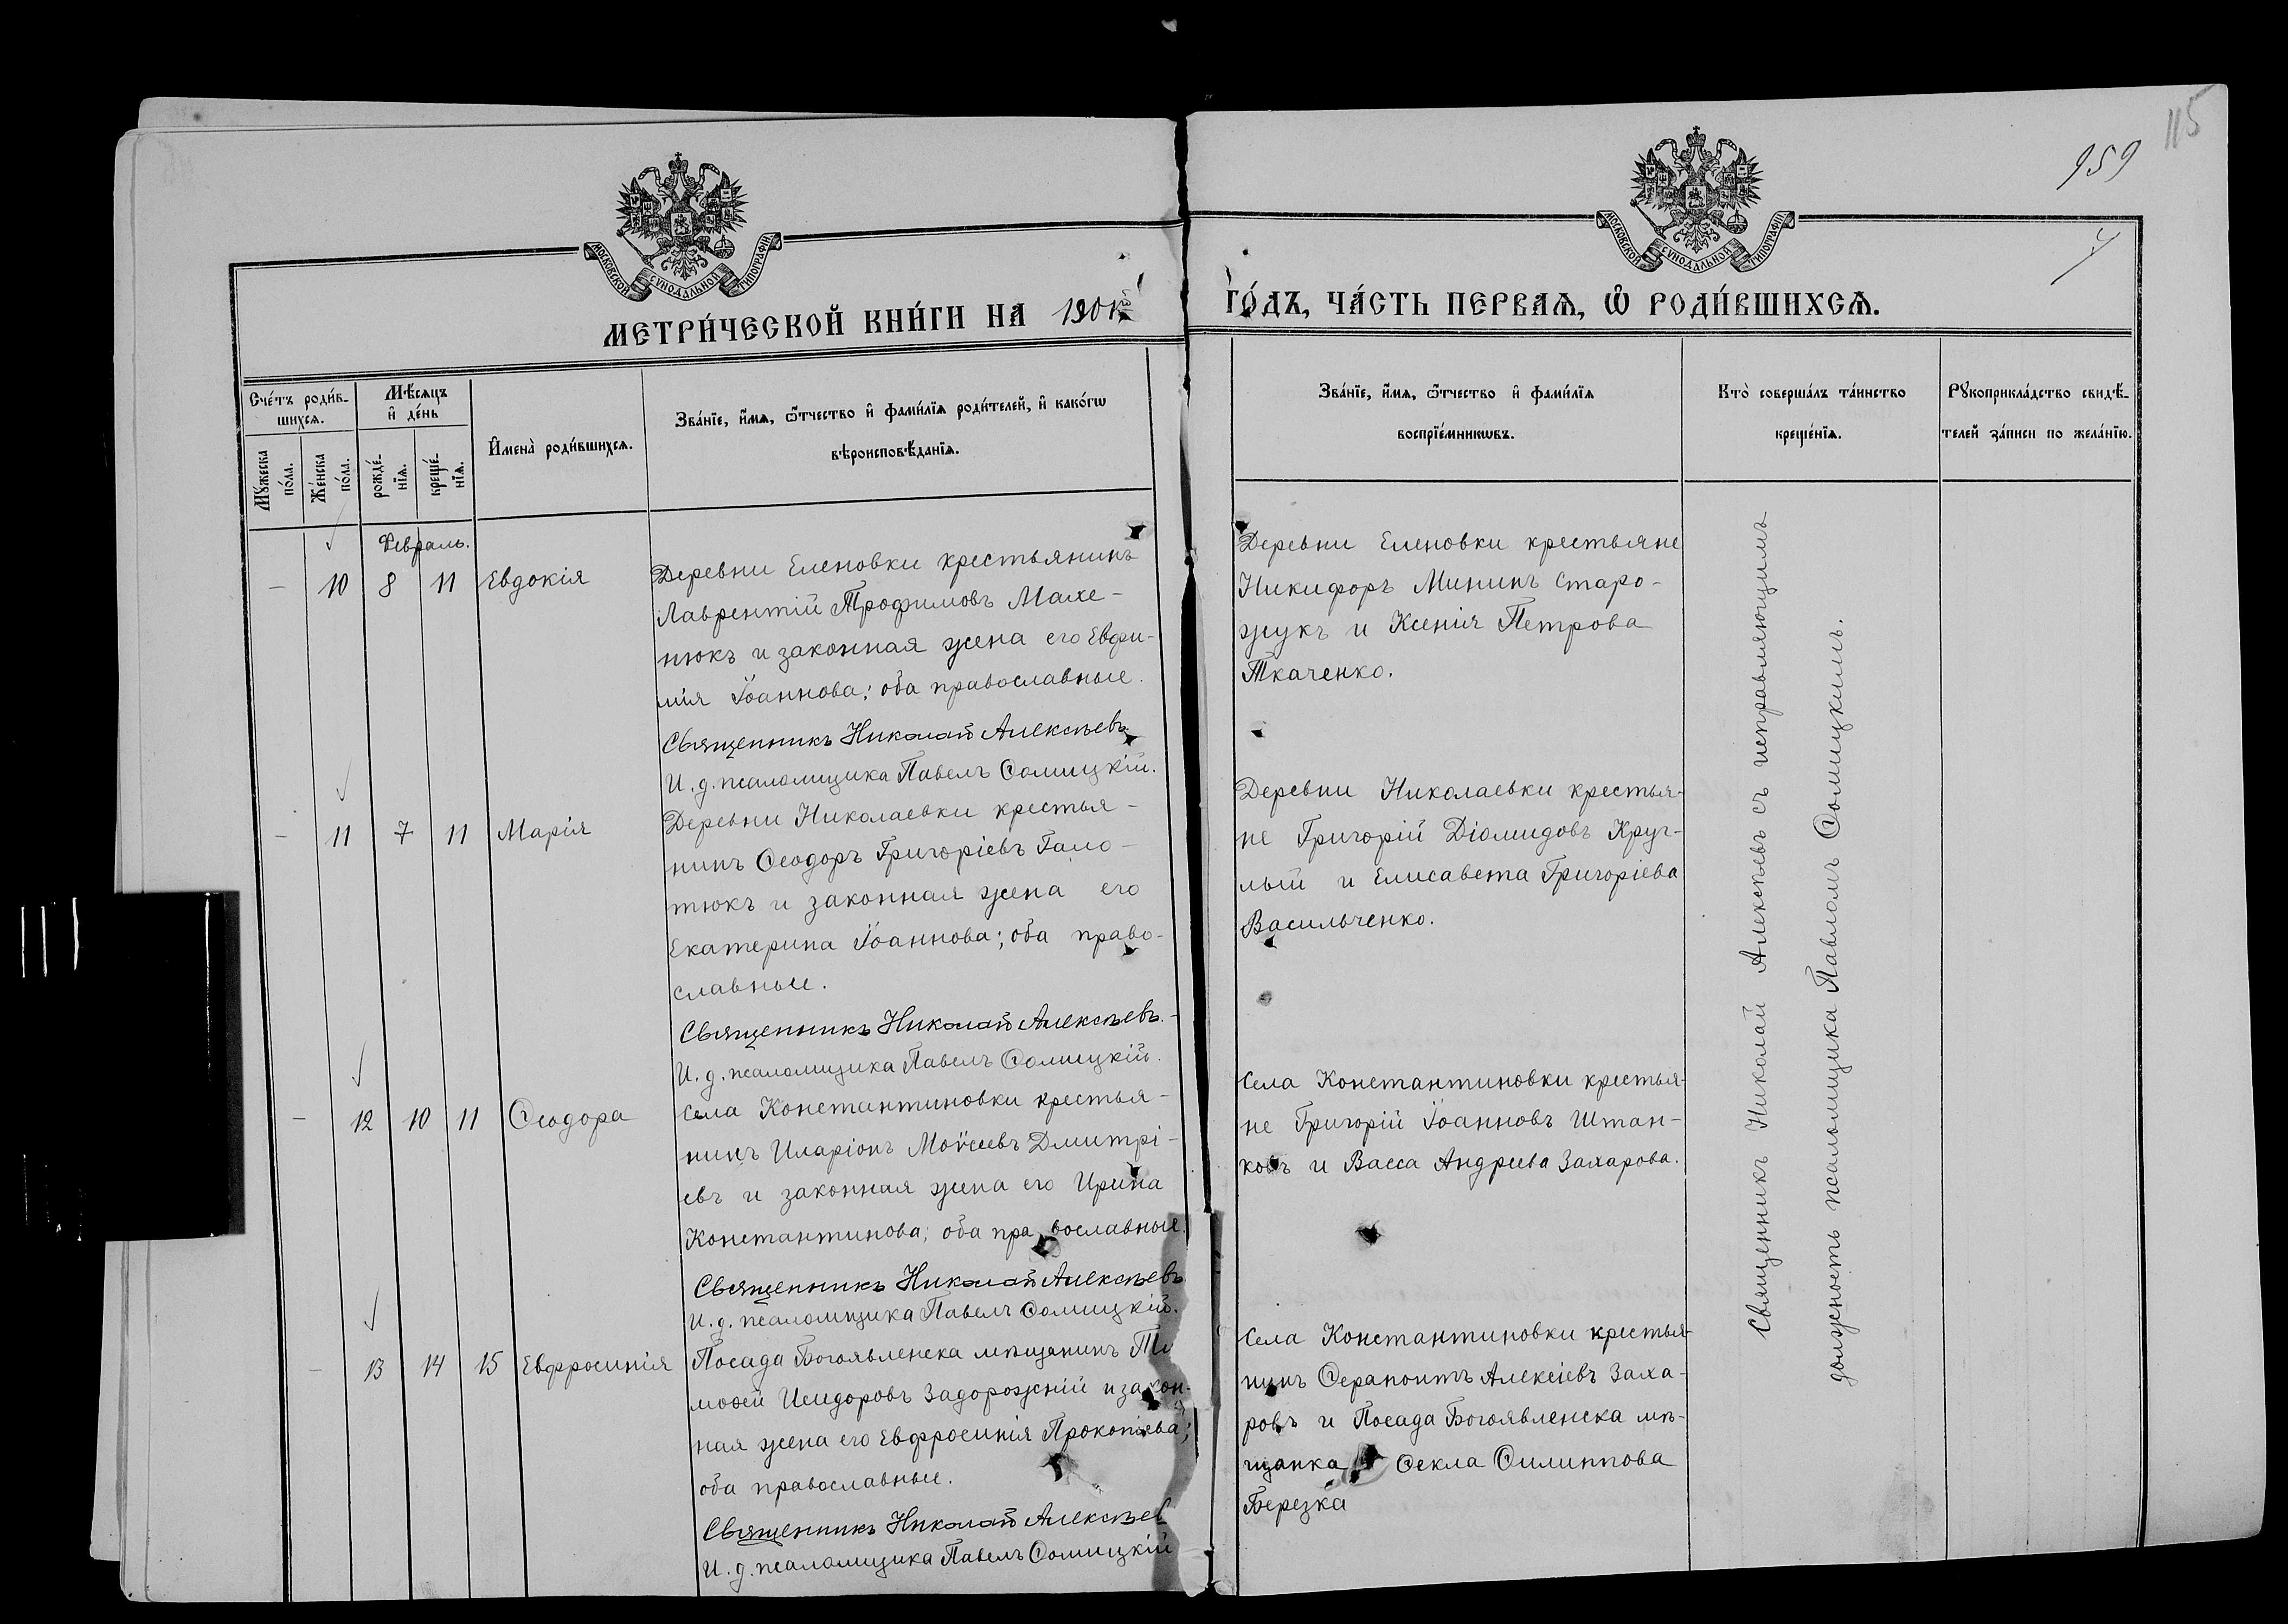 115
959
МОСКОВСКОЙ СУНОДАЛЬНОЙ ТИПОГРАФІИ
МОСКОВСКОЙ СУНОДАЛЬНОЙ ТИПОГРАФІИ
МЕТРИ́ЧЕСКОЙ КНИ́ГИ НА 190
ГО́ДЪ, ЧА́СТЬ ПЕРВАѦ, Ѡ҆ РОДИ́ВШИХСѦ.
Сче́тъ роди́в-
шихсѧ.
Мꙋ́жеска
по́ла.
Же́нска
по́ла.
Мѣ́сѧцъ
и҆ де́нь
рожде́-
нїѧ.
креще́-
нїѧ.
И҆мена̀ роди́вшихсѧ.
Зва́нїе, и҆́мѧ, ѻ҆́тчество и҆ фами́лїѧ роди́телей, и҆ како́гѡ
вѣроисповѣ́данїѧ.
Зва́нїе, и҆́мѧ, ѻ҆́тчество и҆ фами́лїѧ
воспрїе́мникѡвъ.
Кто̀ соверша́лъ та́инство
креще́нїѧ.
Рꙋкоприкла́дство свидѣ́-
телей за́писи по жела́нїю.
Февраль.
— 10 8 11 Евдокія
Деревни Еленовки крестьянинъ
Лаврентій Трофимовъ Махе-
нюкъ и законная жена его Евфи-
мія Іоаннова; оба православные.
Священникъ Николай Алексѣевъ
И. д. псаломщика Павелъ Сомицкій.
Деревни Еленовки крестьяне
Никифоръ Мининъ Старо-
жукъ и Ксенія Петрова
Ткаченко.
— 11 7 11 Марія
Деревни Николаевки крестья-
нинъ Ѳеодоръ Григоріевъ Гало-
тюкъ и законная жена его
Екатерина Іоаннова; оба право-
славные.
Священникъ Николай Алексѣевъ.
И. д. псаломщика Павелъ Сомицкій.
Деревни Николаевки крестья-
не Григорій Діомидовъ Круг-
лый и Елисавета Григоріева
Васильченко.
— 12 10 11 Ѳеодора
Села Константиновки крестья-
нинъ Иларіонъ Моѵсеевъ Дмитрі-
евъ и законная жена его Ирина
Константинова; оба православные.
Священникъ Николай Алексѣевъ
И. д. псаломщика Павелъ Сомицкій.
Села Константиновки крестья-
не Григорій Іоанновъ Штан-
ковъ и Васса Андреева Захарова.
— 13 14 15 Евфросинія
Посада Богоявленска мѣщанинъ Ти
моѳей Исидоровъ Задорожній и закон-
ная жена его Евфросинія Прокопіева;
оба православные.
Священникъ Николай Алексѣев
И. д. псаломщика Павелъ Сомицкій
Села Константиновки крестья-
нинъ Серапонтъ Алексіевъ Заха-
ровъ и Посада Богоявленска мѣ-
щанка Ѳекла Филиппова
Березка
Священникъ Николай Алексѣевъ съ исправляющимъ
должность псаломщика Павломъ Сомицкимъ.